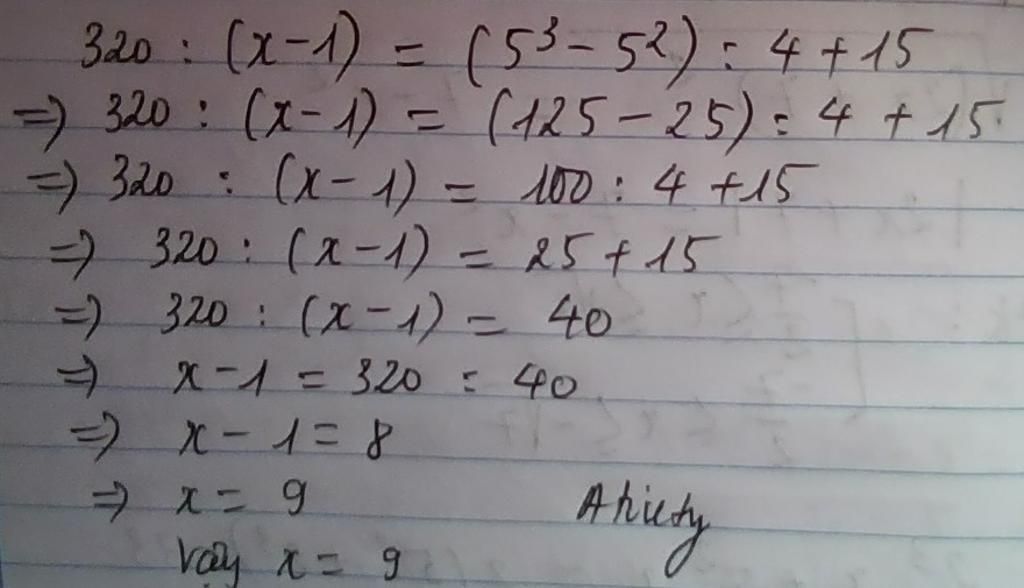 320 : (x-1) = (5³ - 5²) : 4 + 15
=> 320 : (x-1) = (125 - 25) : 4 + 15
=> 320 : (x-1) = 100 : 4 + 15
=> 320 : (x-1) = 25 + 15
=> 320 : (x-1) = 40
=> x - 1 = 320 : 40
=> x - 1 = 8
=> x = 9
Vậy x = 9